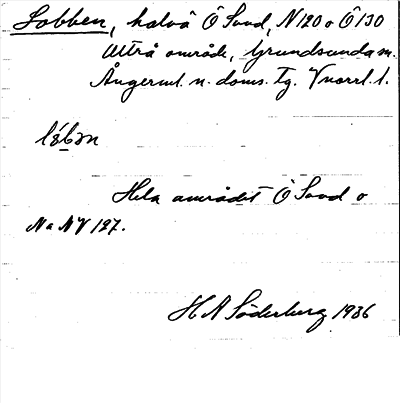 Lobben, halvö Ö Sand, N 120 o Ö 130
Utträ område, Grundsunda sn.
Ångerml. n. doms. tg. Vnorrl. l.
lób̲ən
Hela området Ö Sand o
N a N V 127.
H A Söderberg 1936